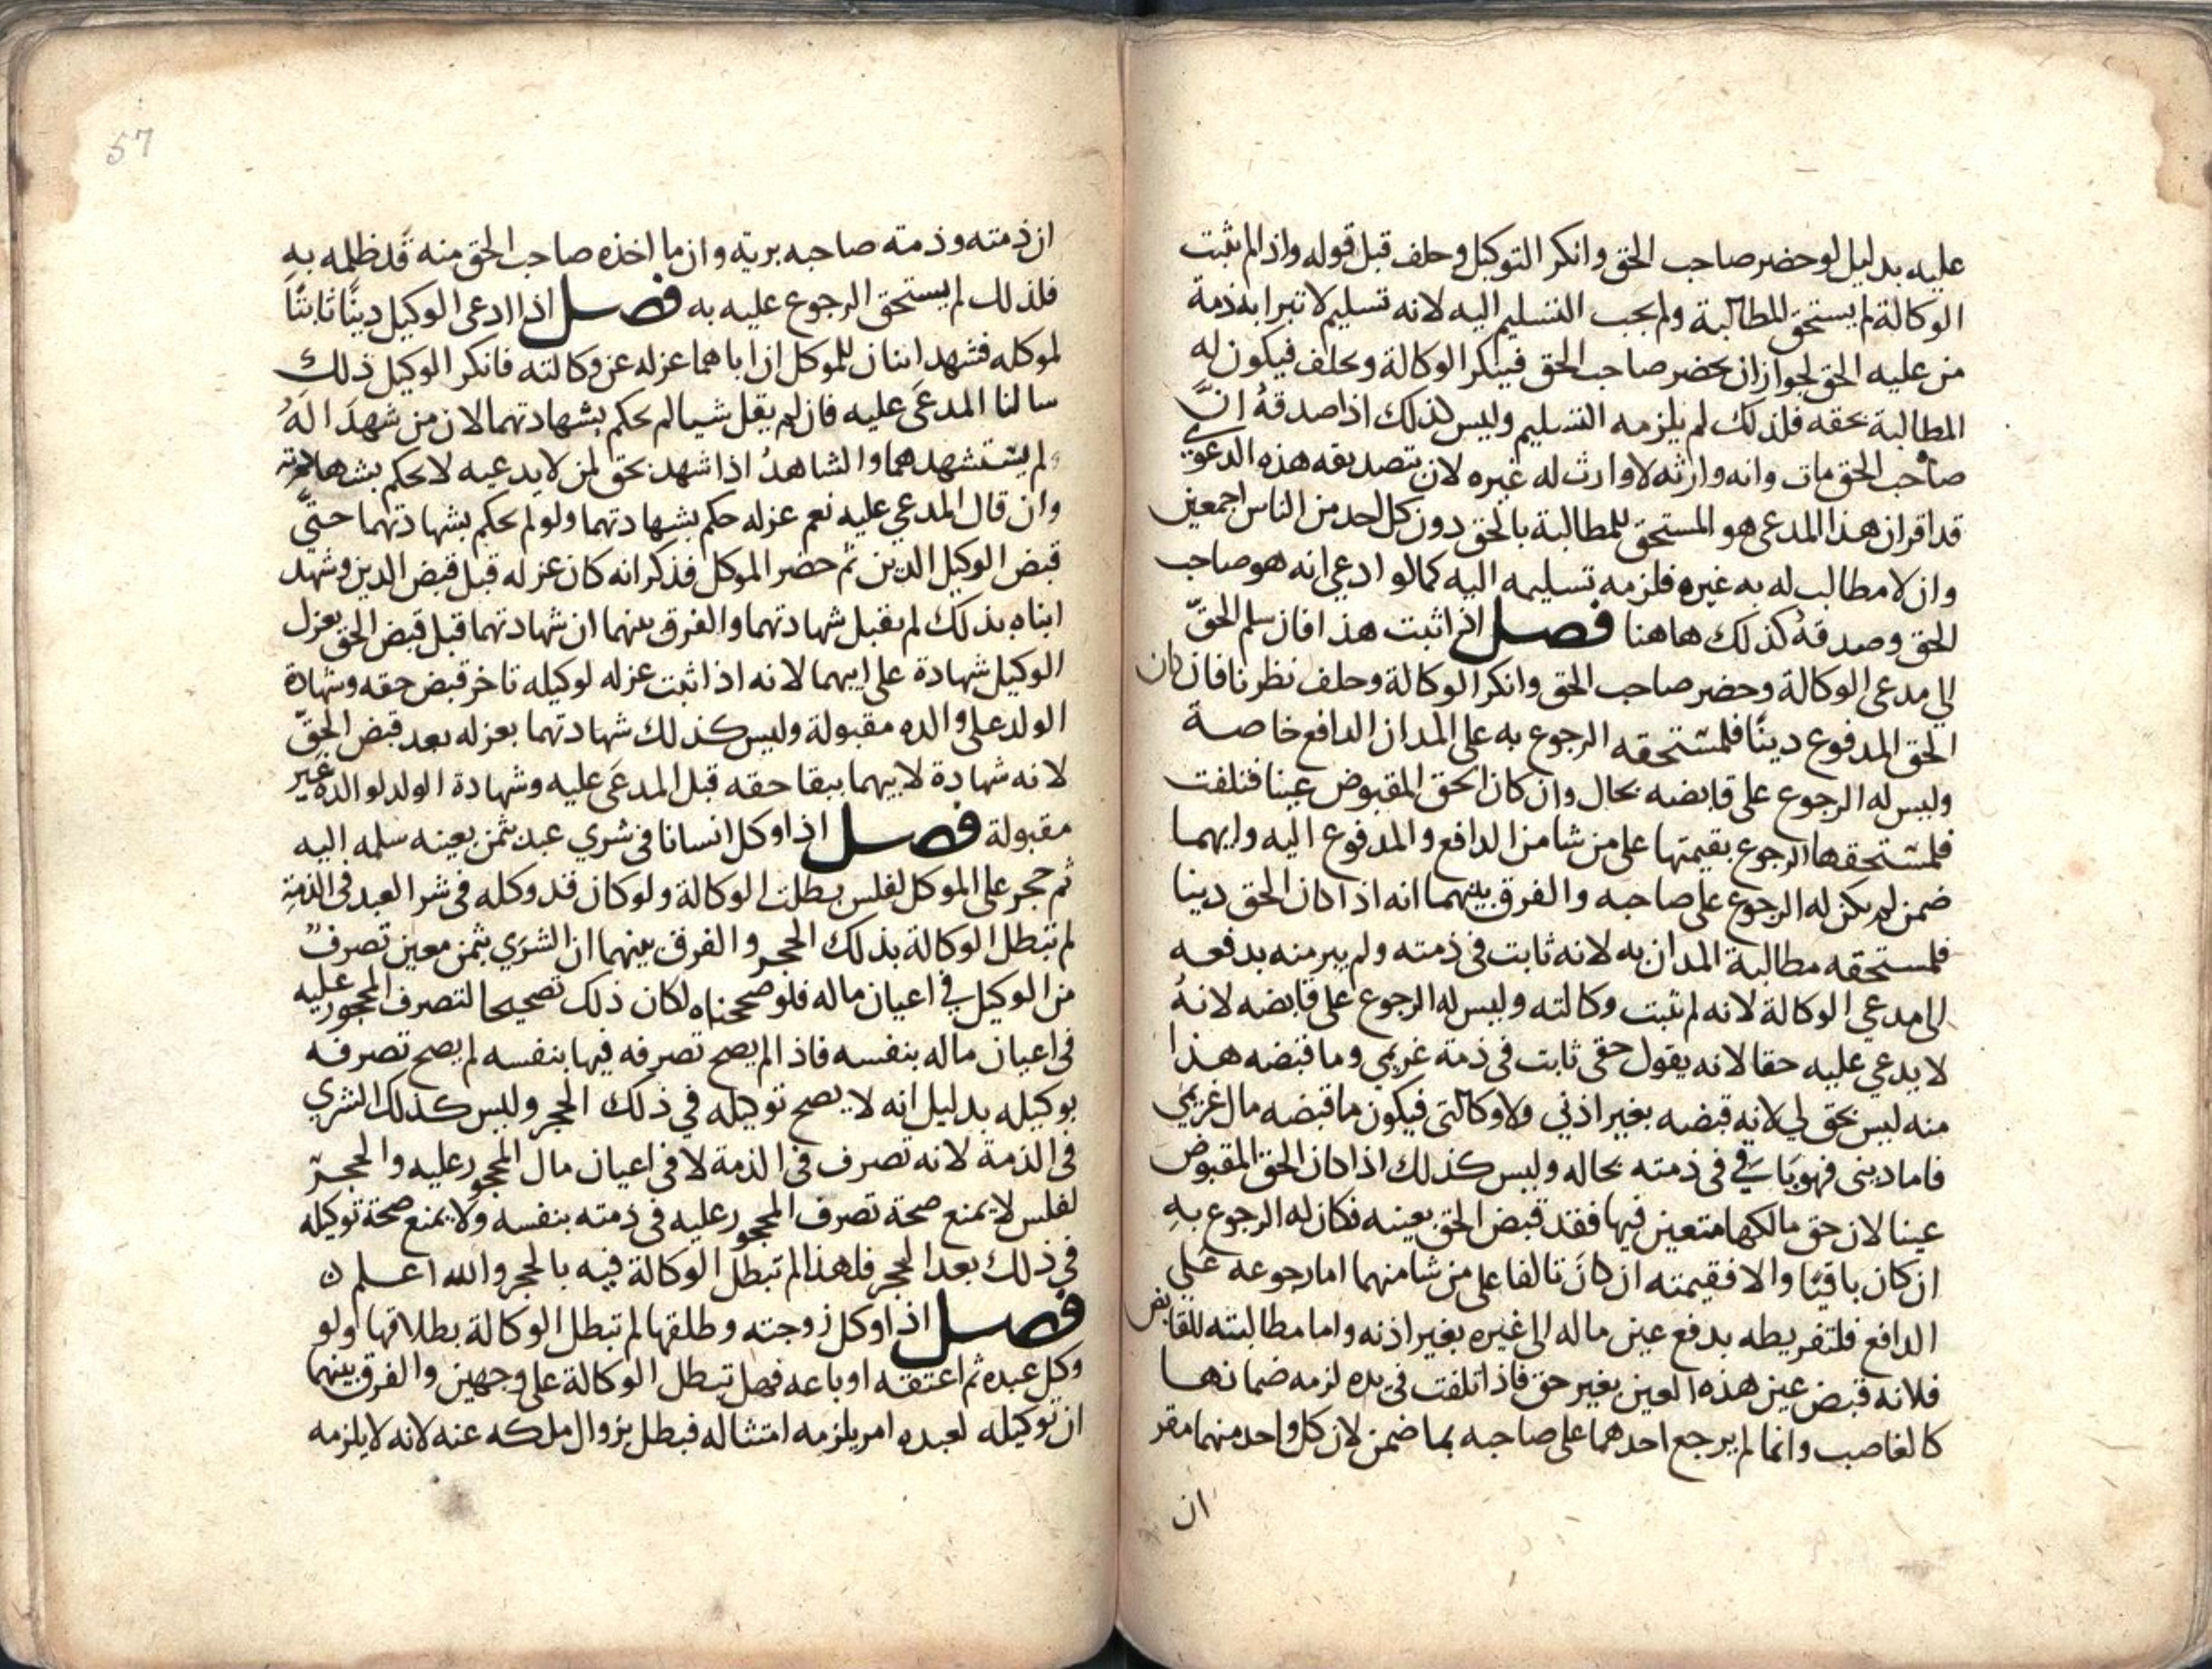 عليه بدليل لو حضر صاحب الحق وانكر التوكيل وحلف قبل قوله واذا لم تثبت
الوكالة لم يستحق المطالبة ولم يجب التسليم اليه لانه تسليم لا تبرا به ذمة
من عليه الحق لجواز ان يحضر صاحب الحق فينكر الوكالة ويحلف فيكون له
المطالبة بحقه فلذلك لم يلزمه التسليم وليس كذلك اذا صدقهُ انَّ
صاحب الحق مات وانه وارثه لا وارث له غيره لان بتصديقه هذه الدعوى
قد اقر ان هذا المدعى هو المستحق للمطالبة بالحق دون كل احد من الناس اجمعين
وان لا مطالب له به غيره فلزمه تسليمه اليه كما لو ادعي انه هو صاحب
الحق وصدقهُ كذلك هاهنا فصل اذا ثبت هذا فان سلم الحقّ
الي مدعى الوكالة وحضر صاحب الحق وانكر الوكالة وحلف نظرنا فان كان
الحق المدفوع دينًا فلمستحقه الرجوع به على المدان الدافع خاصة
وليس له الرجوع على قابضه بحال وان كان الحق المقبوض عينا فتلفت
فلمستحقها الرجوع بقيمتها على من شا من الدافع والمدفوع اليه وايهما
ضمن لم يكن له الرجوع على صاحبه والفرق بينهما انه اذا كان الحق دينا
فلمستحقه مطالبة المدان به لانه ثابت في ذمته ولم يبر منه بدفعه
الى مدعي الوكالة لانه لم تثبت وكالته وليس له الرجوع على قابضه لانهُ
لا يدعي عليه حقا لانه يقول حقى ثابت في ذمة غريمي وما قبضه هذا
منه ليس بحق لي لانه قبضه بغير اذني ولا وكالتى فيكون ما قبضه مال غريمي
فاما دينى فهو باق في ذمته بحاله وليس كذلك اذا كان الحق المقبوض
عينا لان حق مالكها متعين فيها فقد قبض الحق بعينه فكان له الرجوع بهِ
ان كان باقيًا والا فقيمته ان كان تالفا على من شا منهما اما رجوعه علي
الدافع فلتفريطه بدفع عين ماله الى غيره بغير اذنه واما مطالبته للقابض
فلانه قبض عين هذه العين بغير حق فاذا تلفت في يده لزمه ضمانها
كالغاصب وانما لم يرجع احدهما على صاحبه بما ضمن لان كل واحد منهما مقر
ان
57
ان ذمته وذمته صاحبه برية وان ما اخذه صاحب الحق منه قد ظلمه به
فلذلك لم يستحق الرجوع عليه به فصل اذا ادعى الوكيل دينًا ثابتًا
لموكله فشهد ابنان للموكل ان اباهما عزله عن وكالته فانكر الوكيل ذلك
سالنا المدعَى عليه فان لم يقل شيا لم يحكم بشهادتهما لان من شهدَا لهُ
لم يستشهدهما والشاهدُ اذا شهد بحق لمن لا يدعيه لا يحكم بشهادته
وان قال المدعي عليه نعم عزله حكم بشهادتهما ولو لم يحكم بشهادتهما حتَّي
قبض الوكيل الدين ثم حضر الموكل فذكر انه كان عزله قبل قبض الدين وشهد
ابناه بذلك لم يقبل شهادتهما والفرق بينهما ان شهادتهما قبل قبض الحق بعزل
الوكيل شهادة على ابيهما لانه اذا ثبت عزله لوكيله تاخر قبض حقه وشهادة
الولد على والده مقبولة وليس كذلك شهادتهما بعزله بعد قبض الحقّ
لانه شهادة لابيهما ببقا حقه قبل المدعَى عليه وشهادة الولد لوالده غير
مقبولة فصل اذا وكل انسانا في شري عبد بثمن بعينه سلمه اليه
ثم حجر على الموكل لفلس بطلت الوكالة ولو كان قد وكله في شرا العبد في الذمةِ
لم تبطل الوكالة بذلك الحجر والفرق بينهما ان الشرَي بثمن معين تصرفٌ
من الوكيل في اعيان ماله فلو صححناه لكان ذلك تصحيحا لتصرف المحجور عليه
في اعيان ماله بنفسه فاذا لم يصح تصرفه فيها بنفسه لم يصح تصرفه
بوكيله بدليل انه لا يصح توكيله في ذلك الحجر وليس كذلك الشري
في الذمة لانه تصرف في الذمة لا في اعيان مال المحجور عليه والحجرّ
لفلس لا يمنع صحة تصرف المحجور عليه في ذمته بنفسه ولا يمنع صحة توكيله
في ذلك بعد الحجر فلهذا لم تبطل الوكالة فيه بالحجر والله اعلم ن
فصل اذا وكل زوجته وطلقها لم تبطل الوكالة بطلاقها ولو
وكل عبده ثم اعتقه او باعه فهل تبطل الوكالة على وجهين والفرق بينهما
ان توكيله لعبده امر يلزمه امتثاله فبطل بزوال ملكه عنه لانه لا يلزمه